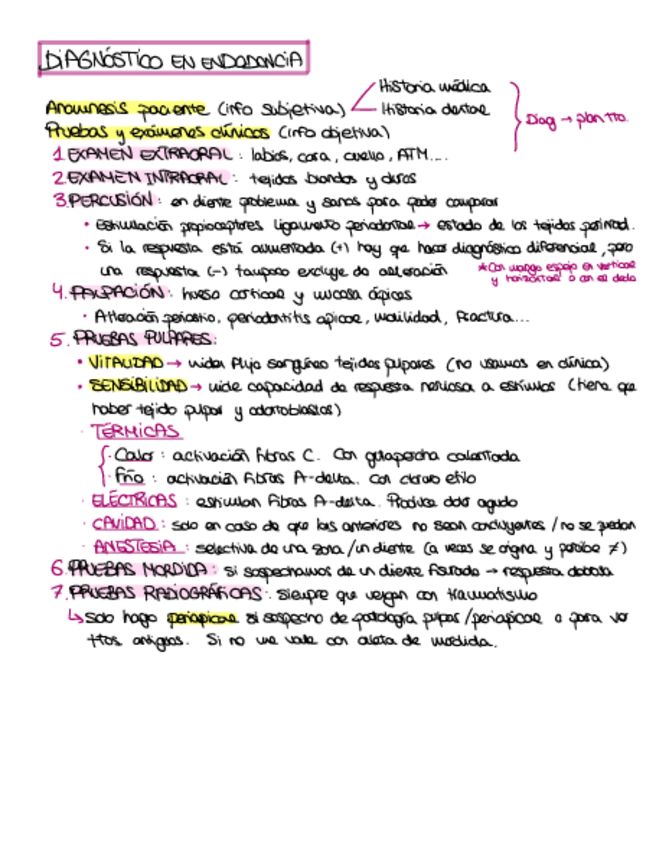 DIAGNÓSTICO EN ENDODONCIA
Historia médica
Anamnesis paciente (info subjetiva) Historia dental
Diag → plan tto.
Pruebas y exámenes clínicos (info objetiva)
1. EXAMEN EXTRAORAL: labios, cara, cuello, ATM....
2. EXAMEN INTRAORAL: tejidos blandos y duros
3. PERCUSIÓN: en diente problema y sanos para poder comparar
• Estimulación propioceptores ligamento periodontal → estado de los tejidos perirrad.
• Si la respuesta está aumentada (+) hay que hacer diagnóstico diferencial, pero
una respuesta (-) tampoco excluye de alteración
*Con mango espejo en vertical
y horizontal o con el dedo
4. PALPACIÓN: hueso cortical y mucosa ápices
• Alteración periostio, periodontitis apical, movilidad, Fractura...
5. PRUEBAS PULPARES:
• VITALIDAD → miden flujo sanguíneo tejidos pulpares (no usamos en clínica)
• SENSIBILIDAD → mide capacidad de respuesta nerviosa a estímulos (tiene que
haber tejido pulpar y odontoblastos)
· TÉRMICAS
· Calor: activación fibras C. Con gutapercha calentada
· Frío: activación Fibras A-delta. con cloruro etilo
· ELÉCTRICAS: estimulan Fibras A-delta. Produce dolor agudo
· CAVIDAD: solo en caso de que las anteriores no sean concluyentes / no se puedan
· ANESTESIA: selectiva de una zona / un diente (a veces se origina y percibe ≠)
6. PRUEBAS MORDIDA: si sospechamos de un diente fisurado → respuesta dolorosa
7. PRUEBAS RADIOGRÁFICAS: siempre que vengan con traumatismo
↳ Solo hago periapical si sospecho de patología pulpar/periapical o para ver
ttos antiguos. Si no me vale con aleta de mordida.